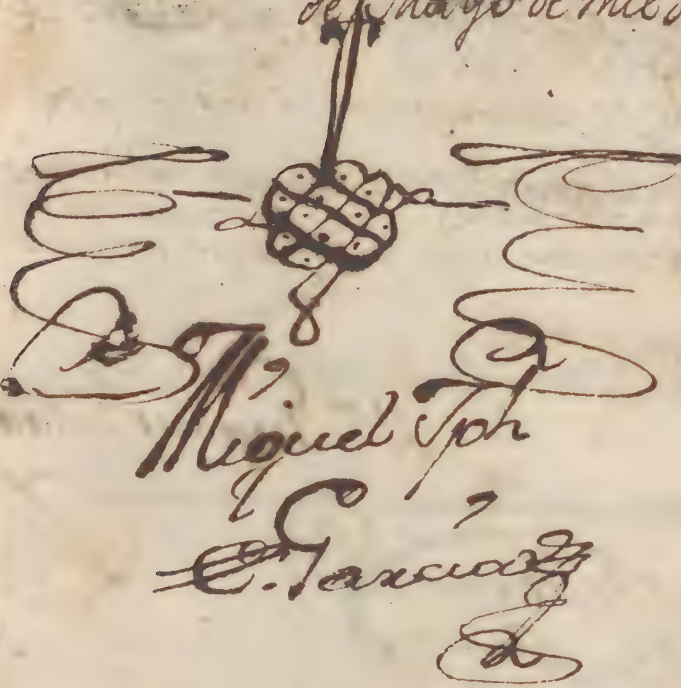 de Mayo de mil
Miguel Jph
García